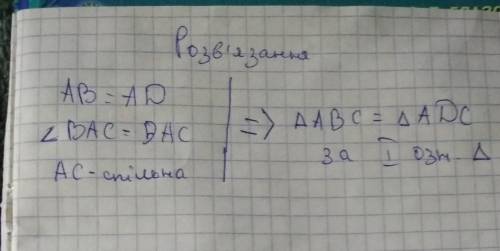 Розв'язання
AB = AD
∠BAC = DAC
AC - спільна
=> ΔABC = ΔADC
за I озн. Δ